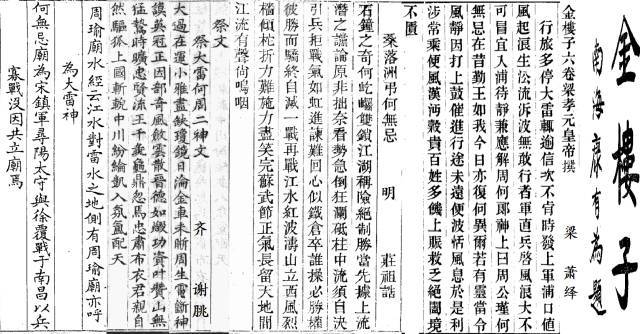 金樓子
南海康有為題
金樓子六卷梁孝元皇帝撰
梁 蕭繹
行旅多停大雷輒逾信次不宵時發上軍浦口值
風起浪生公流泝波無敢行者軍直兵啓風浪大不
可冒宜入浦待靜兼應解周何郎神上曰周公瑾何
無忌在昔勤王如我今日亦復何異爾若有靈當令
風靜因打上鼓催進行途未遠便波恬風息於是利
涉常乘便風漢沔穀貴百姓多饑上賑救之絕闔境
不匱
桑落洲弔何無忌
明 莊祖誥
石鐘之奇何屹㠝雙鎖江湖稱險絕制勝當先據上流
潛之讜論原非拙奈看勢急倒狂瀾砥柱中流須自決
引兵拒戰氣如虹進諫難回心似鐵倉卒誰操必勝權
彼勝而驕終自滅一戰再戰江水紅波濤山立西風烈
檣傾枕折力難施力盡笑完蘇武節正氣長留天地間
江流有聲尚嗚咽
祭文
祭大雷何周二神文
齊 謝朓
大過在運小雅盡缺瓊鏡日淪金車未晰周生電斷神
謨英冠正因部奇風飲雲散晉德如綴功資叶贊山無
猛鷙時曠忠賢流王于爽龜鼎忽焉忠肅布衣君親自
然驅狐上國斬鯢中川紛綸凱入氛氳配天
周瑜廟水經云江水對雷水之地側有周瑜廟亦呼
為大雷神
何無忌廟為宋鎮軍尋陽太守與徐覆戰于南昌以兵
寡戰没因共立廟焉